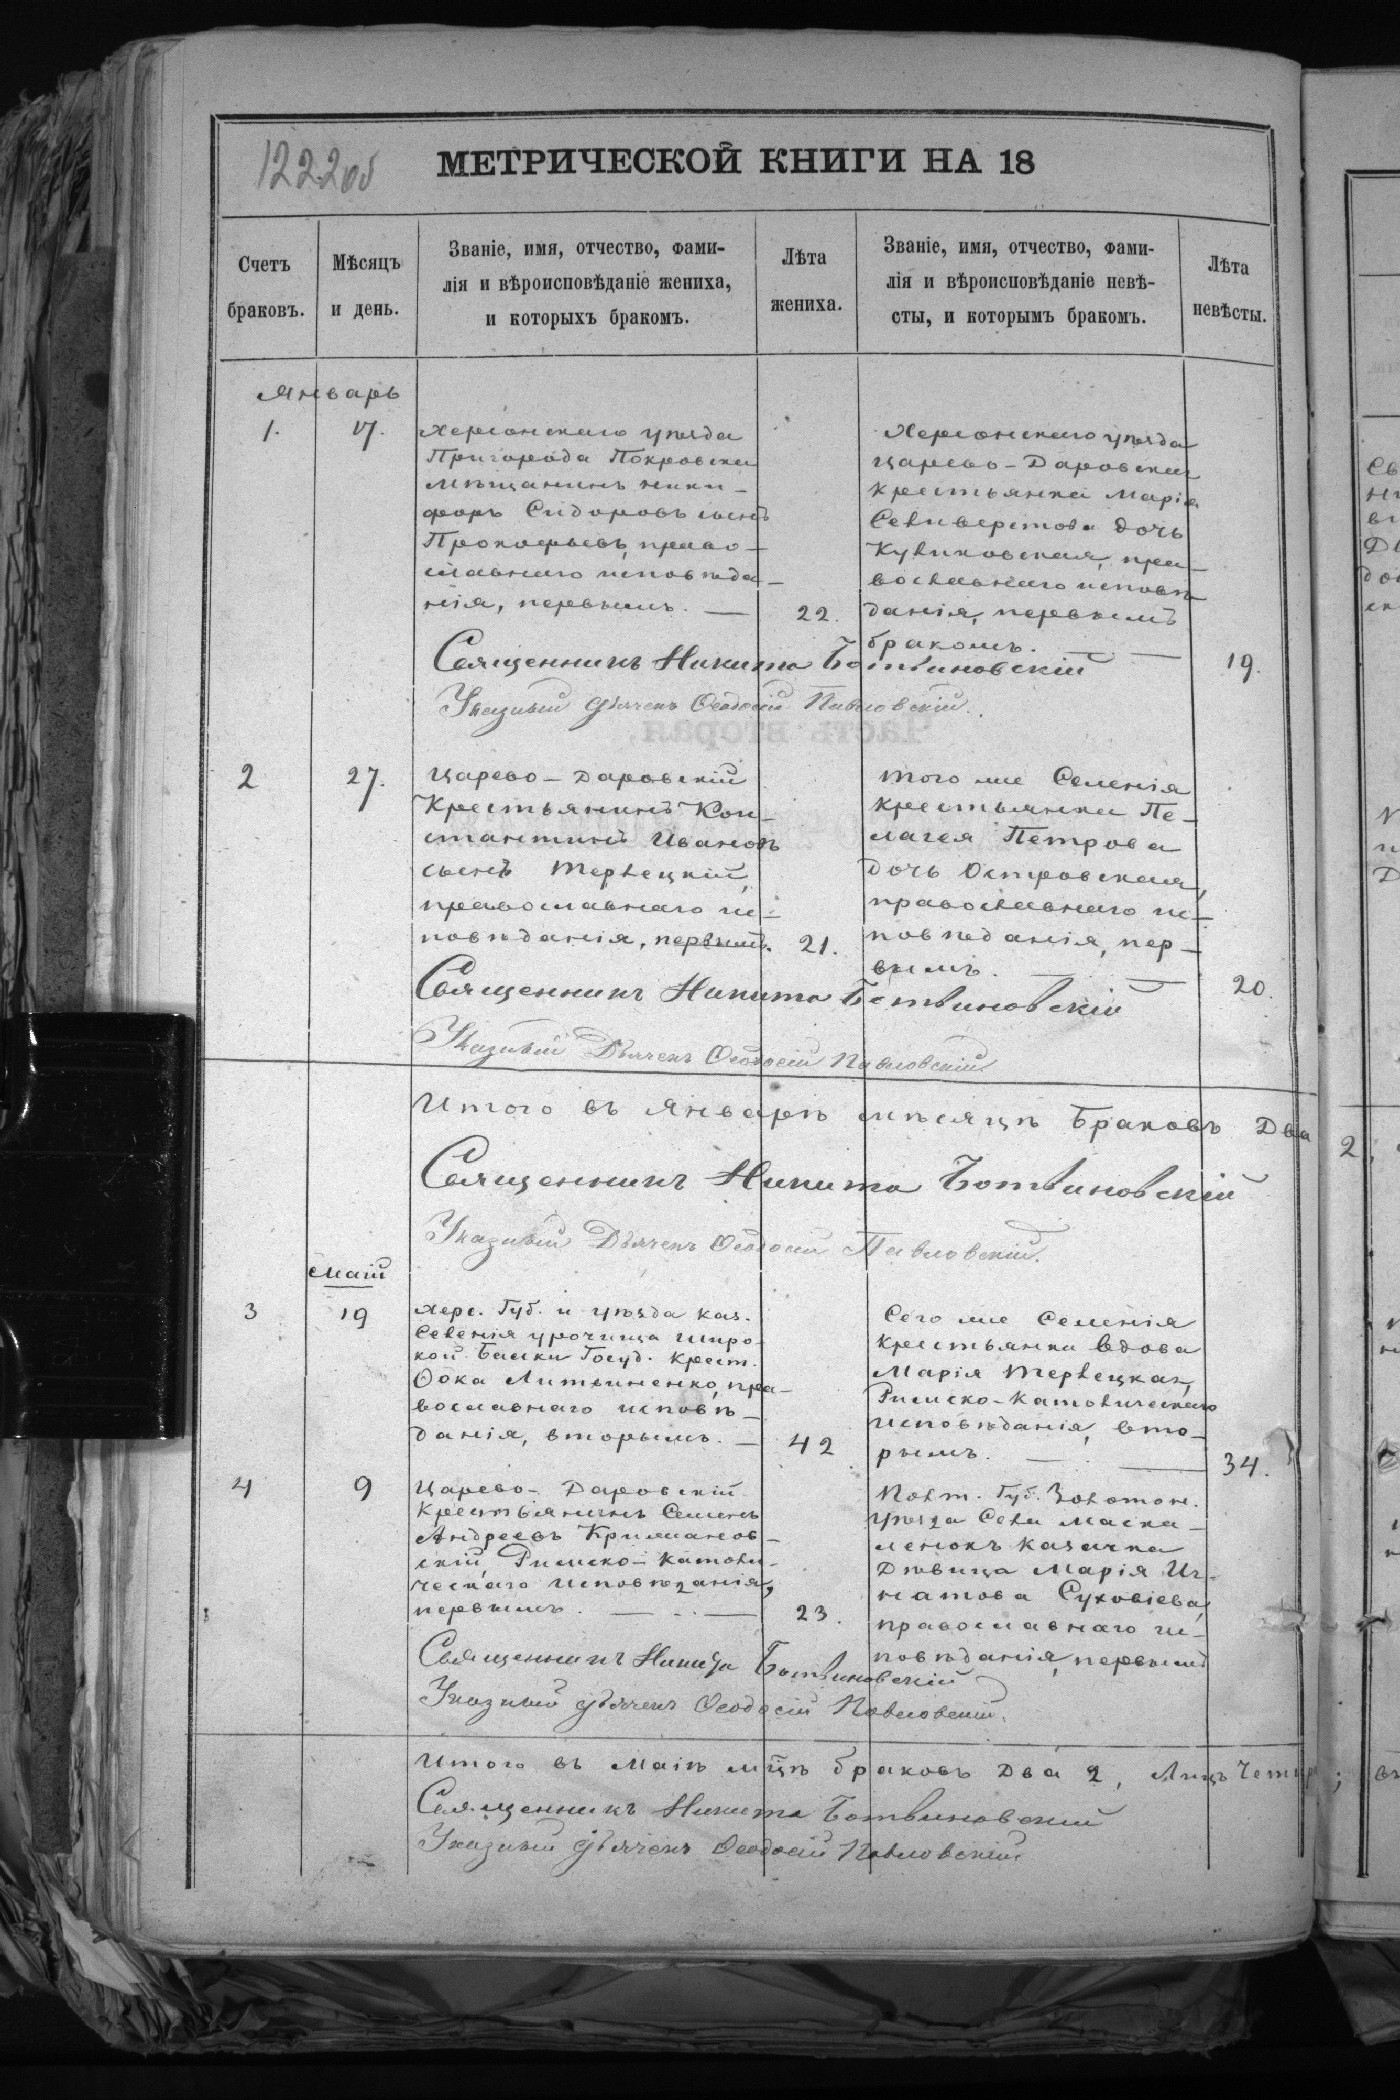 1222об
МЕТРИЧЕСКОЙ КНИГИ НА 18
Счетъ
браковъ.
Мѣсяцъ
и день.
Званіе, имя, отчество, фами-
лія и вѣроисповѣданіе жениха,
и которыхъ бракомъ.
Лѣта
жениха.
Званіе, имя, отчество, фами-
лія и вѣроисповѣданіе невѣ-
сты, и которымъ бракомъ.
Лѣта
невѣсты.
Январь
1.
17.
Херсонскаго уѣзда
Пригорода Покровска
мѣщанинъ Ники-
форъ Сидоровъ сынъ
Прокофьевъ, право-
славнаго исповѣда-
нія, первымъ.
22.
Херсонскаго уѣзда
Царево-Даровская
крестьянка Марія
Селиверстова дочь
Куликовская, пра-
вославнаго исповѣ-
данія, первымъ
бракомъ.
19.
Священникъ Никита Ботвиновскій
Указный Дьячекъ Ѳеодосій Павловскій.
2
27.
Царево-Даровскій
Крестьянинъ Кон-
стантинъ Ивановъ
сынъ Терлецкій,
православнаго ис-
повѣданія, первымъ.
21.
того же Селенія
крестьянка Пе-
лагея Петрова
дочь Островская,
православнаго ис-
повѣданія, пер-
вымъ.
20.
Священникъ Никита Ботвиновскій
Указный Дьячекъ Ѳеодосій Павловскій
Итого въ Январѣ мѣсяцѣ Браковъ Два
2,
Священникъ Никита Ботвиновскій
Указный Дьячекъ Ѳеодосій Павловскій.
Маій
3
19
Херс. Губ. и уѣзда каз.
Селенія урочища Широ-
кой Балки Госуд. крест.
Ѳока Литвиненко, пра-
вославнаго исповѣ-
данія, вторымъ.
42
Сего же Селенія
крестьянка вдова
Марія Терлецкая,
Римско-Католическаго
исповѣданія, вто-
рымъ.
34.
4
9
Царево-Даровскій
Крестьянинъ Семенъ
Андреевъ Крижанов-
скій, Римско-Католи-
ческаго исповѣданія,
первымъ.
23.
Полт. Губ. Золотон.
уѣзда Села Маска-
ленокъ казачка
Дѣвица Марія Иг-
натова Суховіева,
православнаго ис-
повѣданія, первымъ
Священникъ Никита Ботвиновскій
Указный Дьячекъ Ѳеодосій Павловскій.
Итого въ Маіѣ мцѣ браковъ Два 2, Лицъ
Священникъ Никита Ботвиновскій
Указный Дьячекъ Ѳеодосій Павловскій